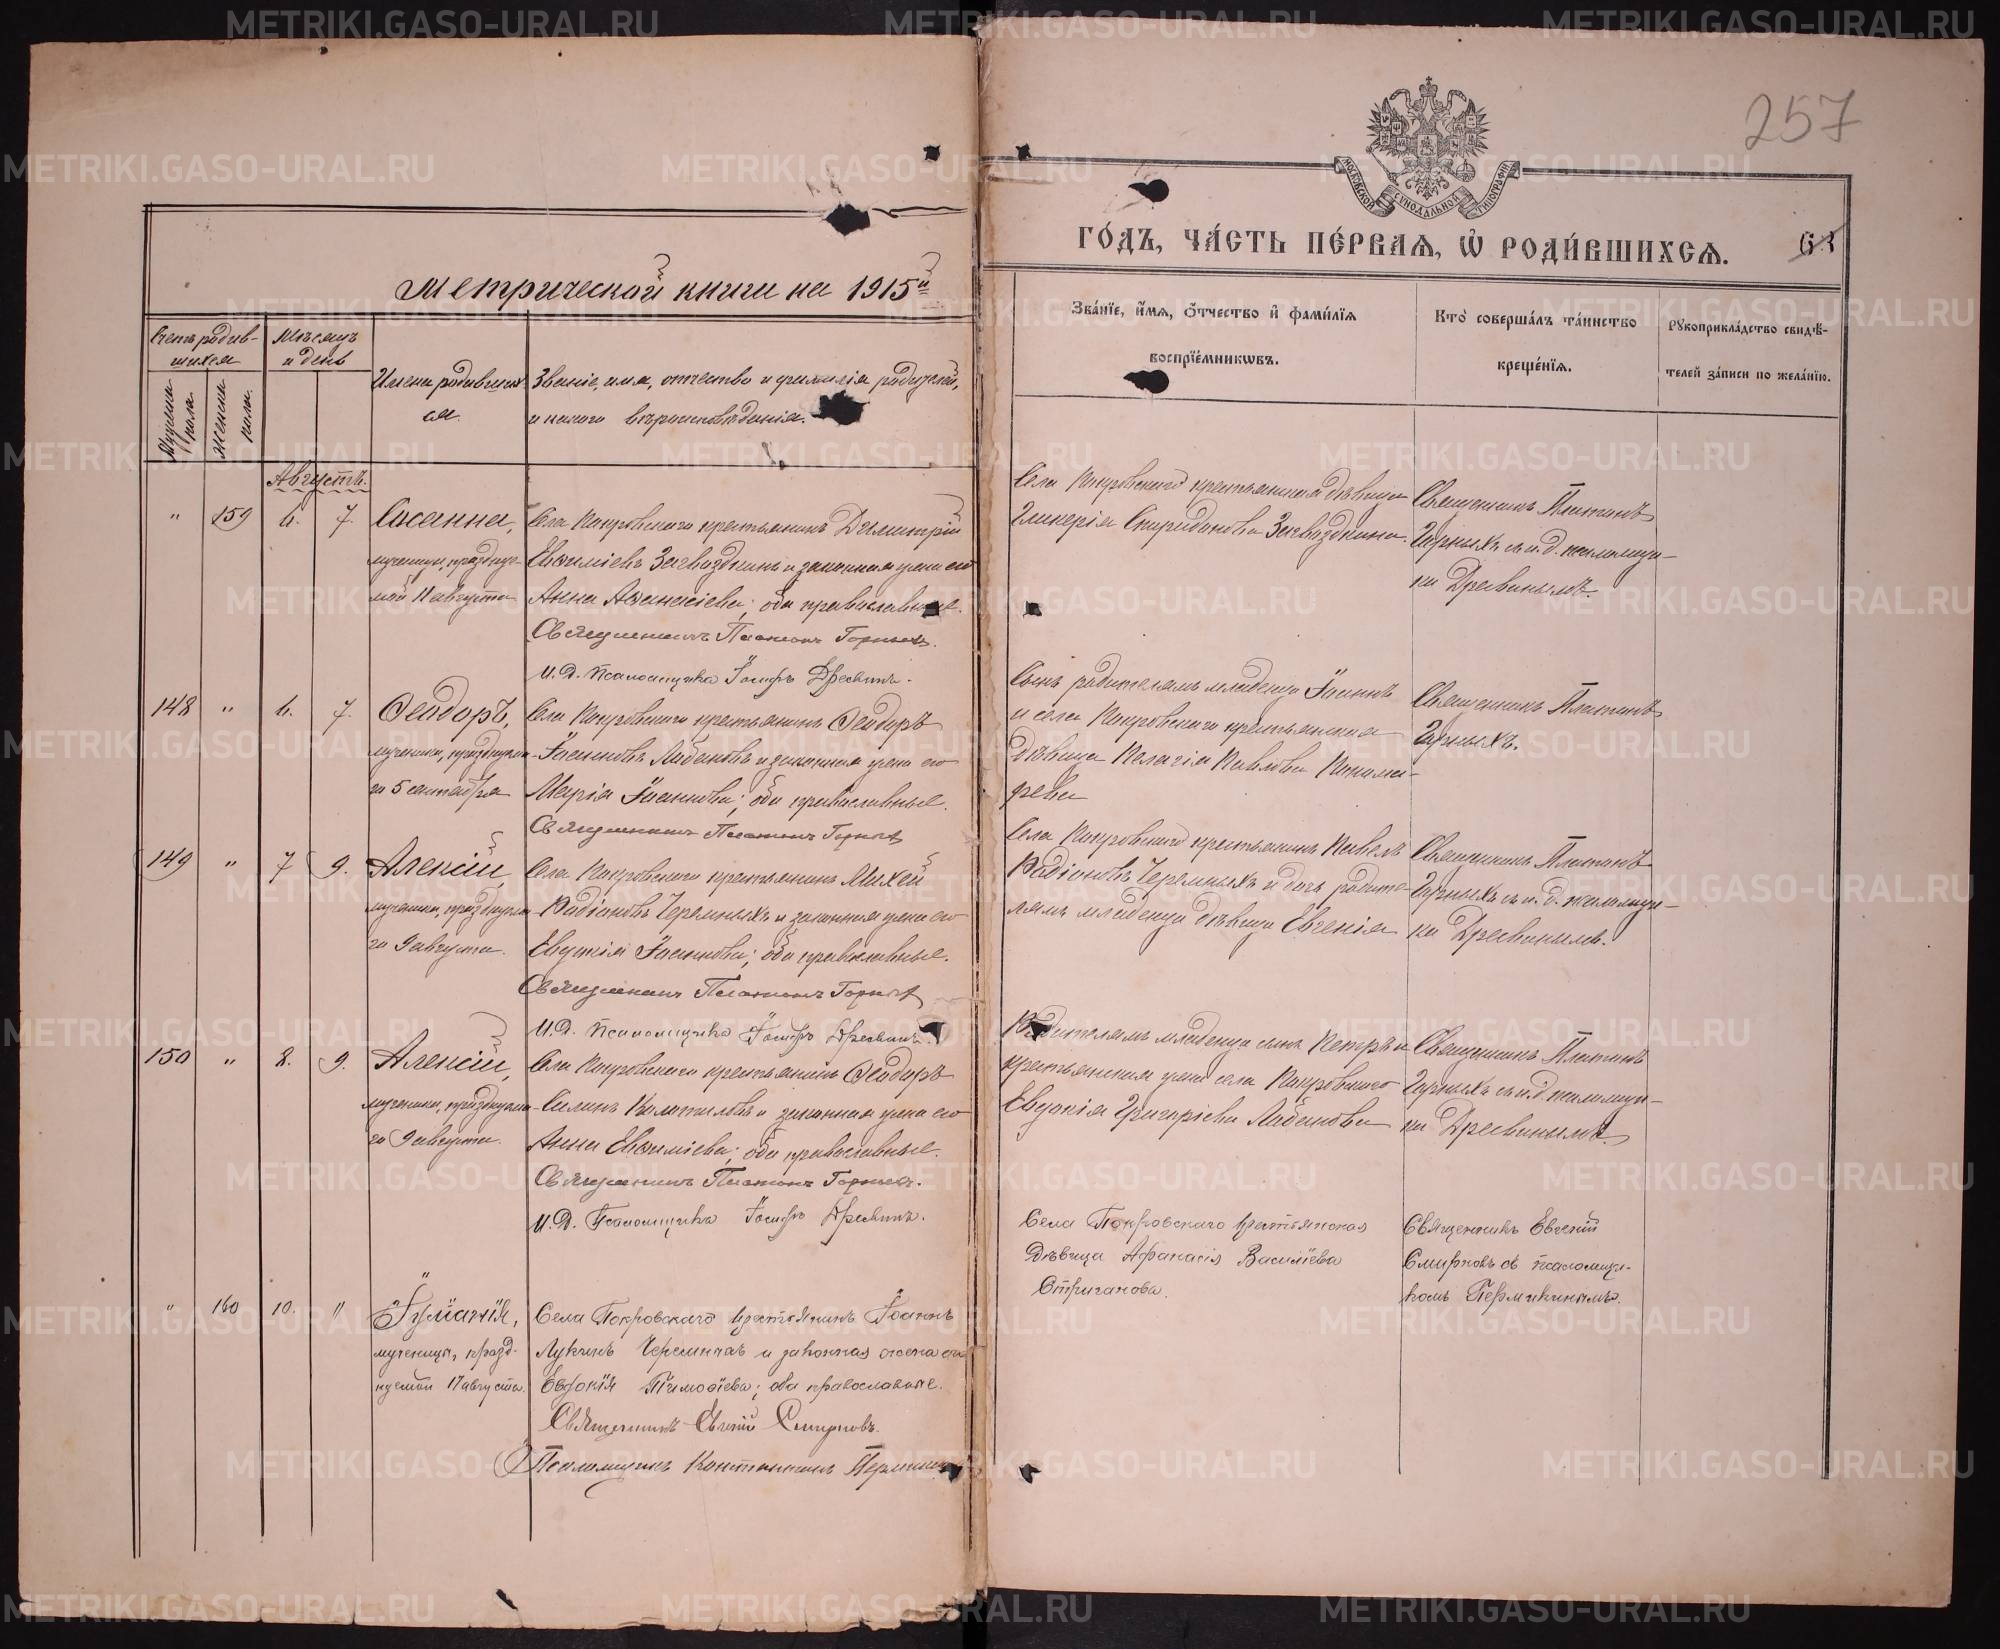 257
МОСКОВСКОЙ СѴНОДАЛЬНОЙ ТИПОГРАФІИ
Метрической книги на 1915й
ГО́ДЪ, ЧА́СТЬ ПЕ́РВАѦ, Ѡ҆ РОДИ́ВШИХСѦ.
63
Счетъ родив-
шихся
Мѣсяцъ
и день
Мужска
пола.
Женска
пола.
Имена родивших
ся.
Званіе, имя, отчество и фамилія родителей,
и какого вѣроисповѣданія.
Зва́нїе, и҆́мѧ, ѻ҆́тчество и҆ фами́лїѧ
воспрїе́мникѡвъ.
Кто̀ соверша́лъ та́инство
креще́нїѧ.
Рꙋкоприкла́дство свидѣ́-
телей за́писи по жела́нїю.
Августъ.
" 159 6. 7. Сосанна,
мученицы, праздну-
мой 11 августа
Села Покровскаго крестьянинъ Димитрій
Евѳиміевъ Загвоздкинъ и законная жена его
Анна Аѳанасіева; оба православные.
Священникъ Платонъ Горныхъ.
И.Д. Псаломщика Іосифъ Дрезвинъ.
Села Покровскаго крестьянская дѣвица
Гликерія Спиридонова Загвоздкина.
Священникъ Платонъ
Горныхъ съ и.д. псаломщи-
ка Дрезвинымъ.
148 " 6. 7. Ѳеодоръ,
мученика, празднуема-
го 5 сентября
Села Покровскаго крестьянинъ Ѳеодоръ
Іоанновъ Лобановъ и законная жена его
Марія Іоаннова; оба православные.
Священникъ Платонъ Горныхъ
Сынъ родителямъ младенца Іоаннъ
и села Покровскаго крестьянская
дѣвица Пелагія Павлова Понома-
рева
Священникъ Платонъ
Горныхъ.
149 " 7 9. Алексій,
мученика, празднуема-
го 9 августа.
Села Покровскаго крестьянинъ Михей
Родіоновъ Черемныхъ и законная жена его
Евдокія Іоаннова; оба православные.
Священникъ Платонъ Горныхъ
И.Д. Псаломщика Іосифъ Дрезвинъ.
Села Покровскаго крестьянинъ Павелъ
Родіоновъ Черемныхъ и дочь родите-
лямъ младенца дѣвица Евгенія
Священникъ Платонъ
Горныхъ съ и.д. псаломщи-
ка Дрезвинымъ.
150 " 8. 9. Алексій,
мученика, празднуема-
го 9 августа.
Села Покровскаго крестьянинъ Ѳеодоръ
Силинъ Колотиловъ и законная жена его
Анна Евѳиміева; оба православные.
Священникъ Платонъ Горныхъ.
И.Д. Псаломщика Іосифъ Дрезвинъ.
Родителямъ младенца сынъ Петръ и
крестьянская жена села Покровскаго
Евдокія Григоріева Лобанова
Священникъ Платонъ
Горныхъ съ и.д. псаломщи-
ка Дрезвинымъ.
" 160 10. " Іуліанія,
мученицы, празд-
нуемой 17 августа.
Села Покровскаго крестьянинъ Іоаннъ
Лукинъ Черемныхъ и законная жена его
Евдокія Тимоѳіева; оба православные.
Священникъ Евгеній Смирновъ.
Псаломщикъ Константинъ Пермикинъ
Села Покровскаго крестьянская
дѣвица Афанасія Василіева
Стриганова.
Священникъ Евгеній
Смирновъ съ псаломщи-
комъ Пермикинымъ.
METRIKI.GASO-URAL.RU